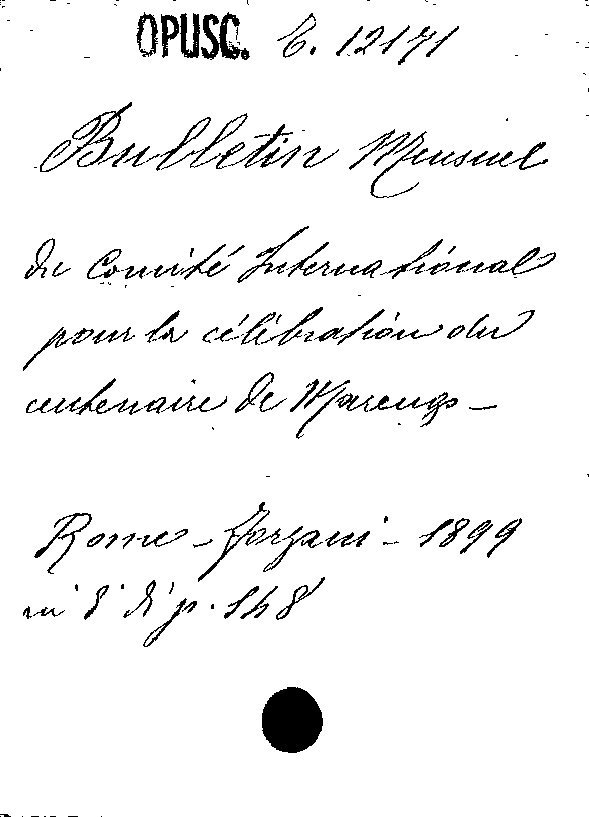 OPUSC. C. 12171
Bulletin Mensuel
du Comité International
pour la célébration du
centenaire de Marengo —
Rome - Forzani - 1899
in 8° di p. 148